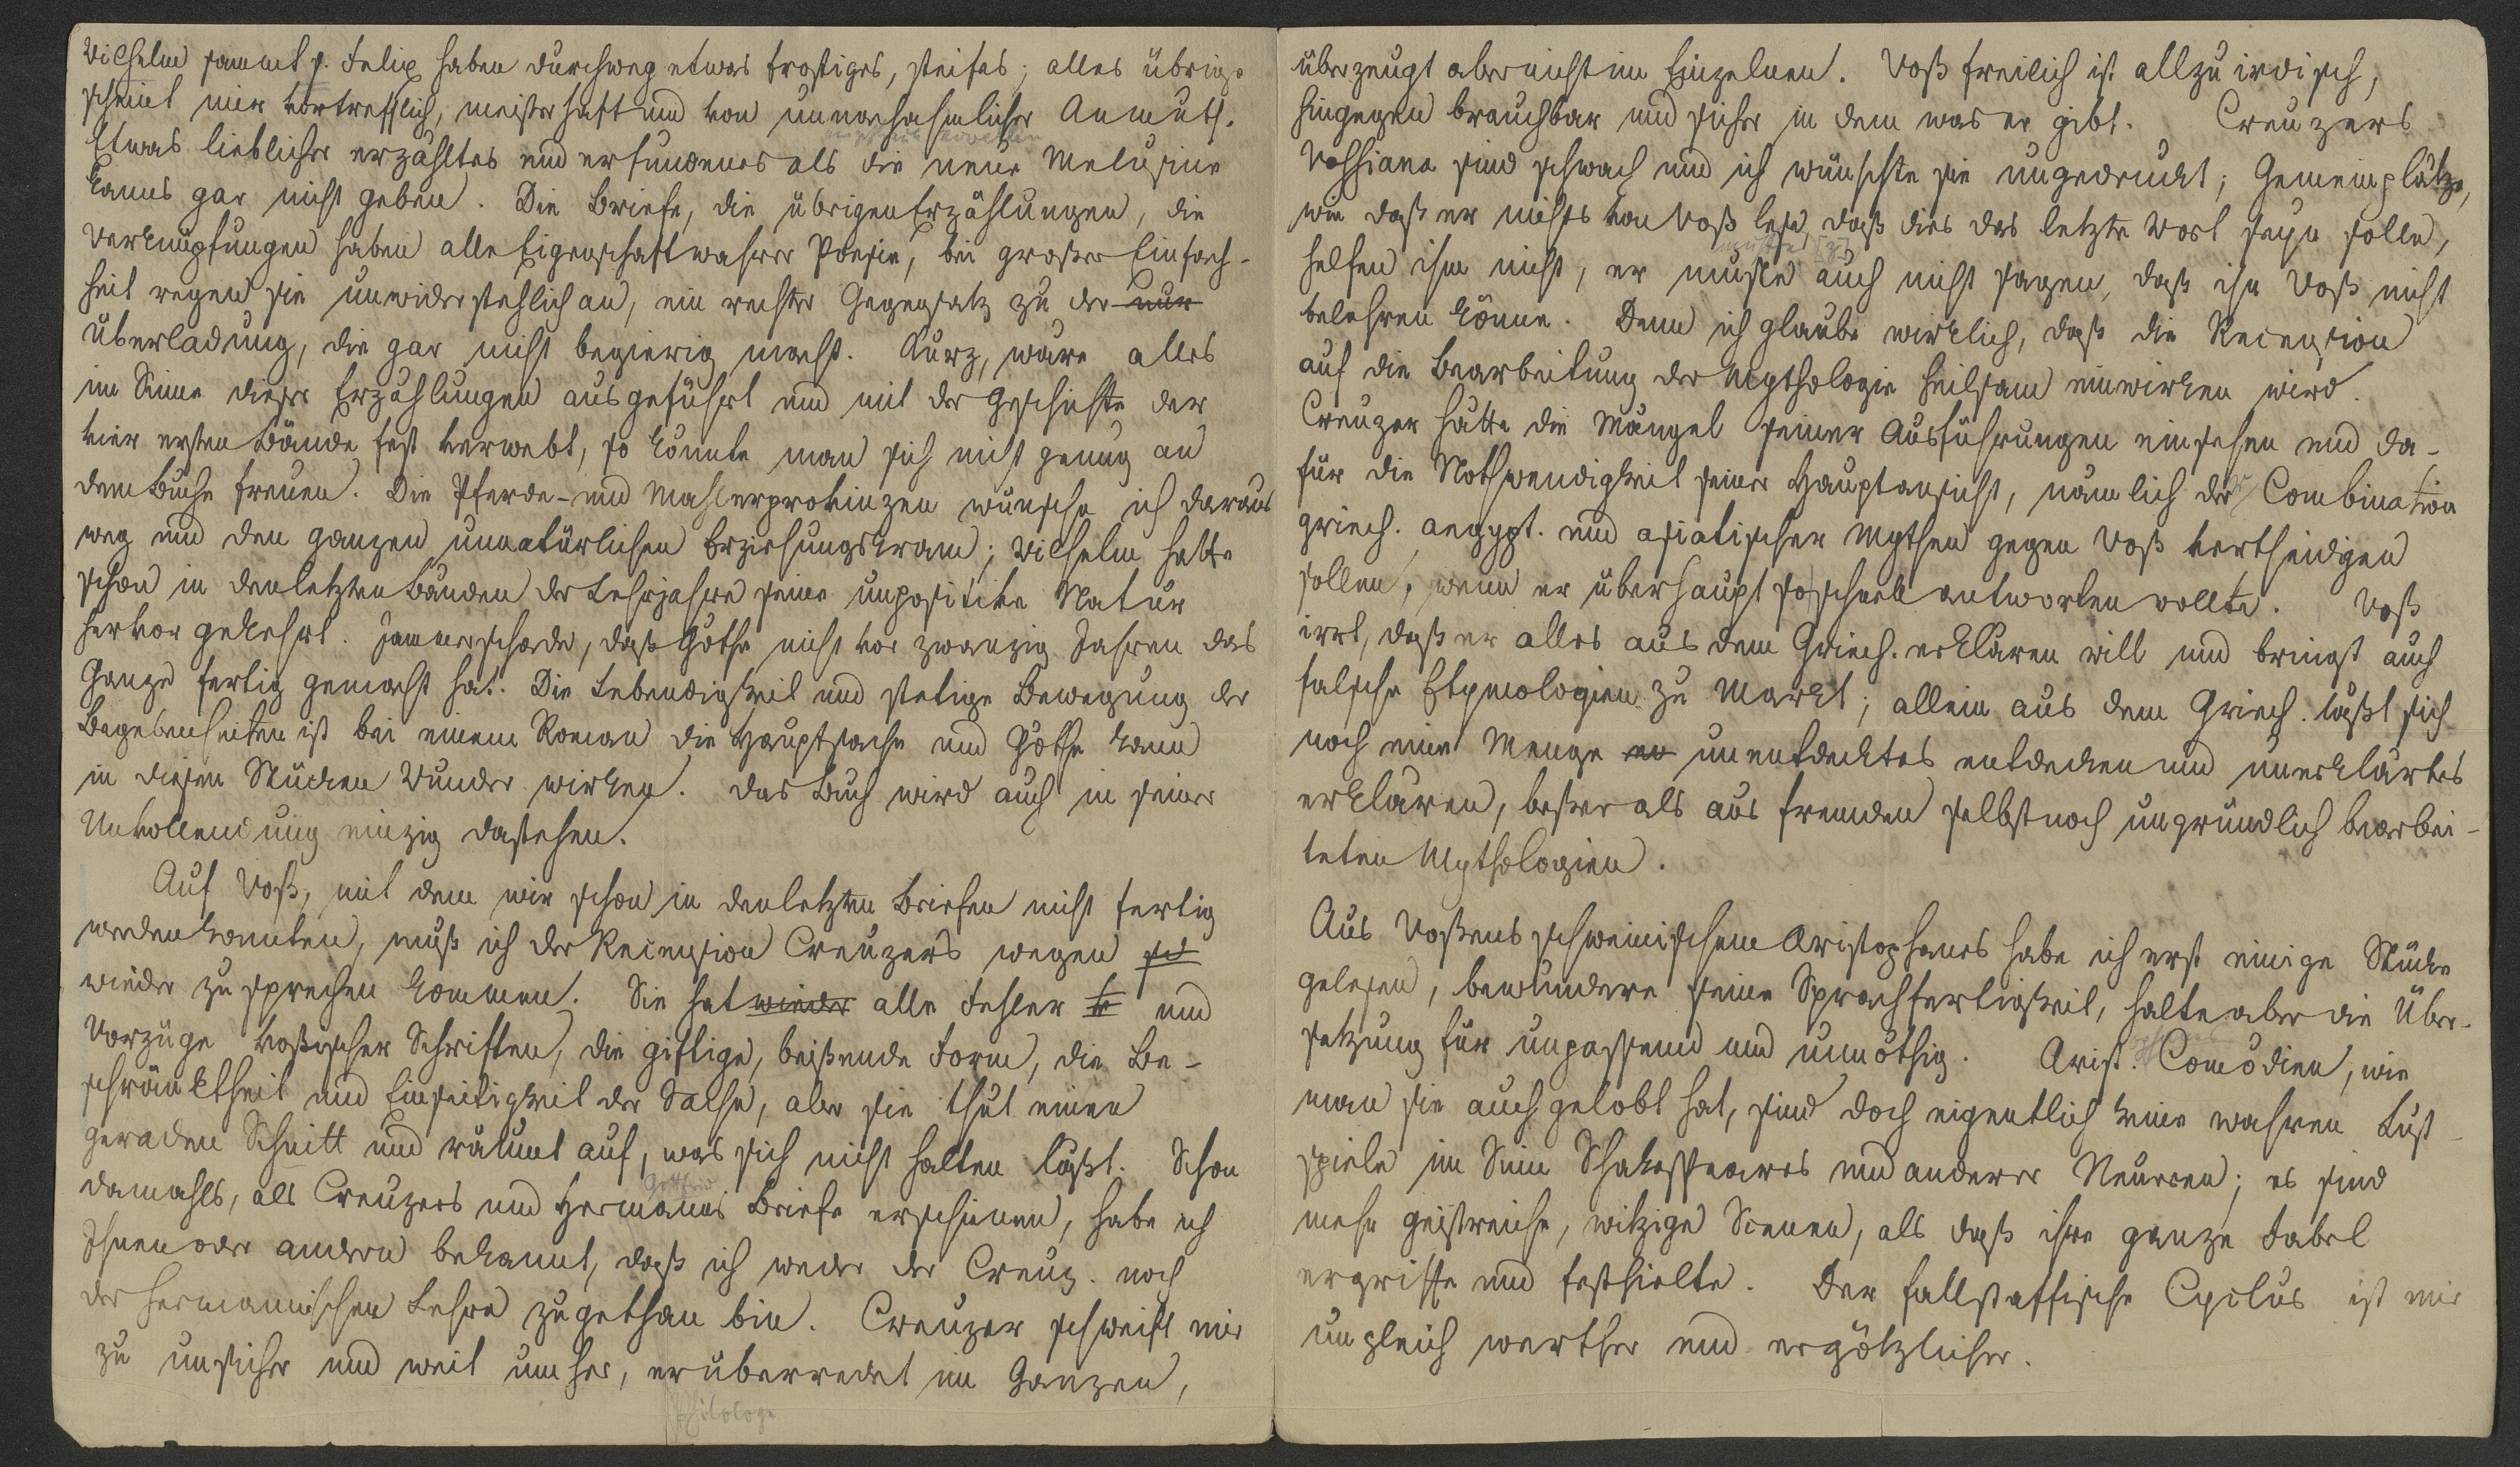 Wilhelm sammt s. Felix haben durchweg etwas frostiges, steifes; alles übrige
scheint mir vortrefflich, meisterhaft und von unnachahmlicher Anmuth.
Etwas lieblicher erzähltes und erfundenes als die neue Melusine
kanns gar nicht geben. Die Briefe, die übrigen Erzählungen, die
Verknüpfungen haben alle Eigenschaft wahrer Poesie, bei großer Einfach-
heit regen sie unwiderstehlich an, ein rechter Gegensatz zu der nur
Überladung, die gar nicht begierig macht. Kurz, wäre alles
im Sinne dieser Erzählungen ausgeführt und mit der Geschichte der
vier ersten Bände fest verwebt, so könnte man sich nicht genug an
dem Buche freuen. Die Pferde- und Mahlerprovinzen wünsche ich daraus
weg und den ganzen unnatürlichen Erziehungskram; Wilhelm hatte
schon in den letzten Bänden der Lehrjahre seine unpositive Natur
hervor gekehrt. Jammerschade, daß Göthe nicht vor zwanzig Jahren das
Ganze fertig gemacht hat. Die Lebendigkeit und stetige Bewegung der
Begebenheiten ist bei einem Roman die Hauptsache und Göthe kann
in diesen Stücken Wunder wirken. Das Buch wird auch in seiner
Unvollendung einzig dastehen.
Auf Voß, mit dem wir schon in den letzten Briefen nicht fertig
werden konnten, muß ich der Recension Creuzers wegen
wieder zu sprechen kommen. Sie hat wieder alle Fehler und
Vorzüge voßischer Schriften, die giftige, beißende Form, die Be-
schränktheit und Einseitigkeit der Sache, aber sie thut einen
geraden Schnitt und räumt auf, was sich nicht halten läßt. Schon
Gottfried
damahls, als Creuzers und Hermanns Briefe erschienen, habe ich
Ihnen oder andern bekannt, daß ich weder der Creuz. noch
der hermannischen Lehre zugethan bin. Creuzer schweift mir
zu unsicher und weit umher, er überredet im Ganzen,
Philologe
überzeugt aber nicht im Einzelnen. Voß freilich ist allzu irdisch,
hingegen brauchbar und sicher in dem was er gibt. Creuzers
Vossiana sind schwach und ich wünschte sie ungedruckt; Gemeinplätze,
wie daß er nichts von Voß lese, daß dies das letzte Wort seyn solle,
müßte [?]
helfen ihm nicht, er mußte auch nicht sagen, daß ihn Voß nicht
belehren könne. Denn ich glaube wirklich, daß die Recension
auf die Bearbeitung der Mythologie heilsam einwirken wird.
Creuzer hätte die Mängel seiner Ausführungen einsehen und da-
für die Nothwendigkeit seiner Hauptansicht, nämlich der Combination
griech. aegypt. und asiatischer Mythen gegen Voß vertheidigen
sollen, wenn er überhaupt so schnell antworten wollte. Voß
irrt, daß er alles aus dem Griech. erklären will und bringt auch
falsche Etymologien zu Markt; allein aus dem Griech. läßt sich
noch eine Menge en unentdecktes entdecken und unerklärtes
erklären, besser als aus fremden selbst noch ungründlich bearbei-
teten Mythologien.
Aus Voßens schweinischem Aristophanes habe ich erst einige Stücke
gelesen, bewundere seine Sprachfertigkeit, halte aber die Über-
setzung für unpassend und unnöthig. Arist. Comödien, wie
man sie auch gelobt hat, sind doch eigentlich keine wahren Lust-
spiele im Sinn Shakespeares und anderer Neueren; es sind
mehr geistreiche, witzige Scenen, als daß ihre ganze Fabel
ergriffe und festhielte. Der fallstaffische Cyclus ist mir
ungleich werther und ergötzlicher.